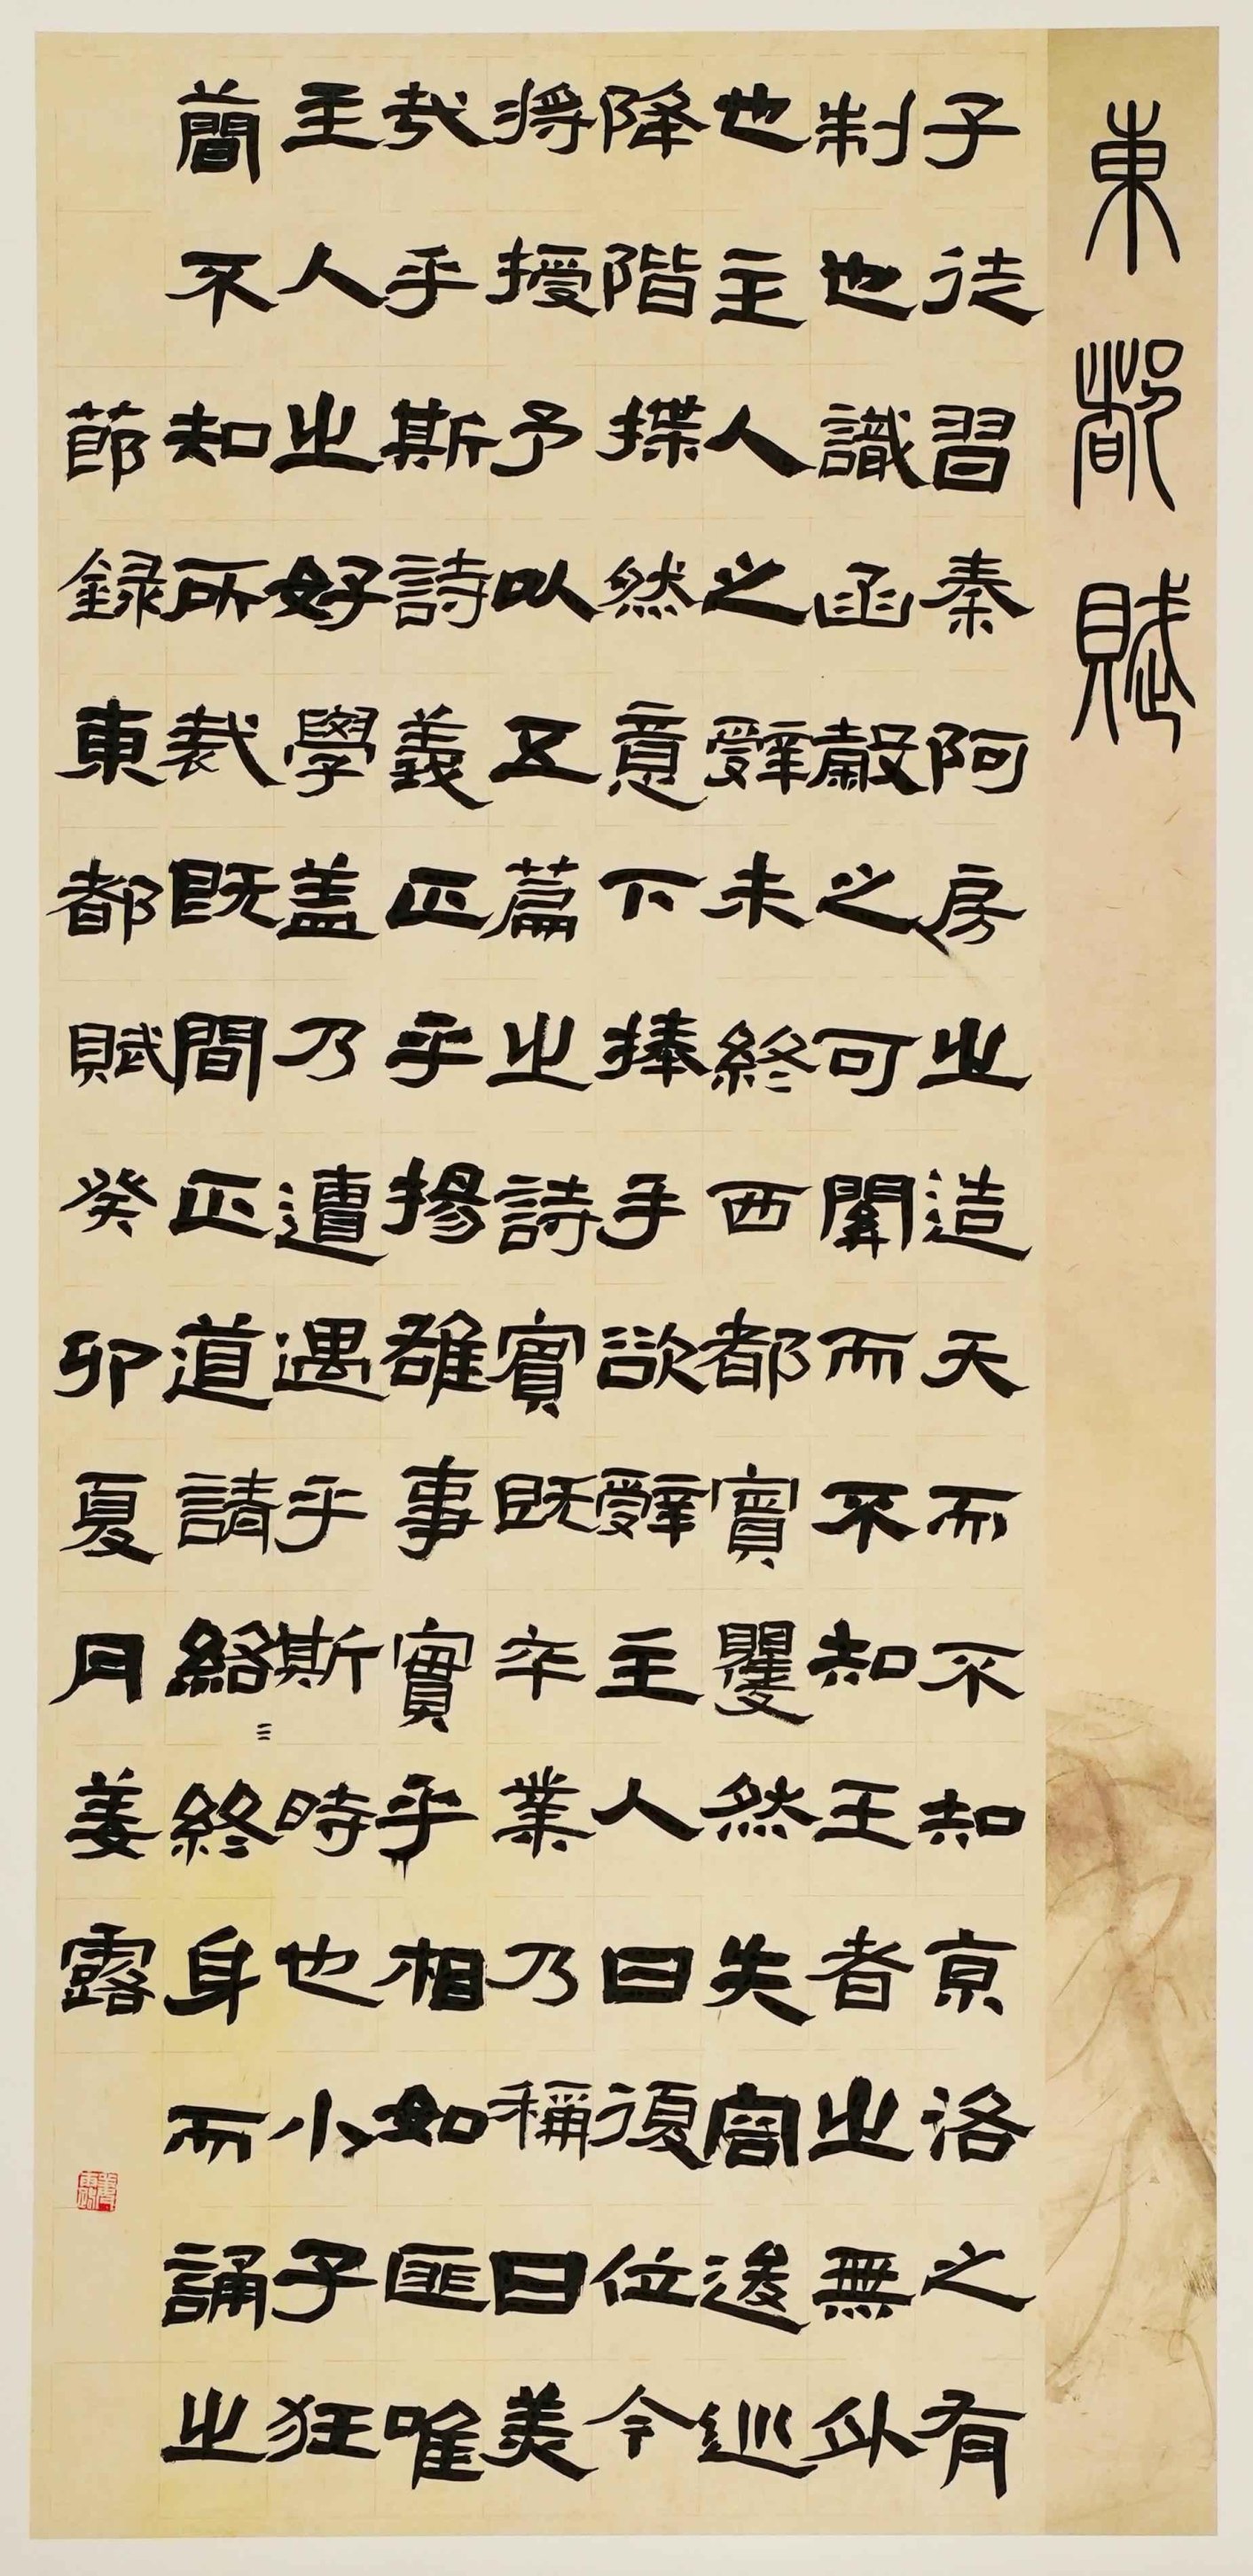 東都賦
子徒習秦阿房之造天而不知京洛之有
制也識函穀之可關而不知王者之無外
也主人之辭未終西都賓矍然失容逡巡
降階揲然意下捧手欲辭主人曰復位今
將授予以五篇之詩賓既卒業乃稱曰美
哉乎斯詩義正乎揚雄事實乎相如匪唯
主人之好學盖乃遭遇乎斯時也小子狂
簡不知所裁既間正道請絡終身而誦之
節録東都賦癸卯夏月姜露
姜露